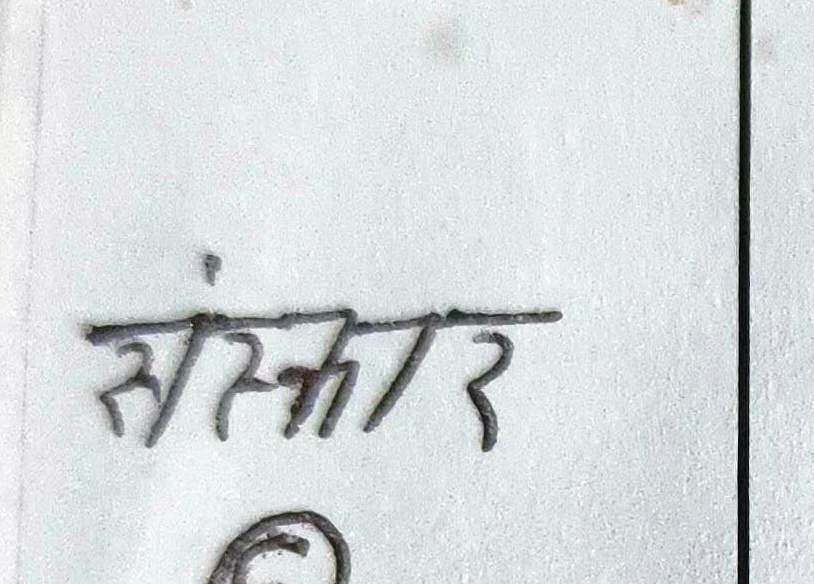 संस्कार